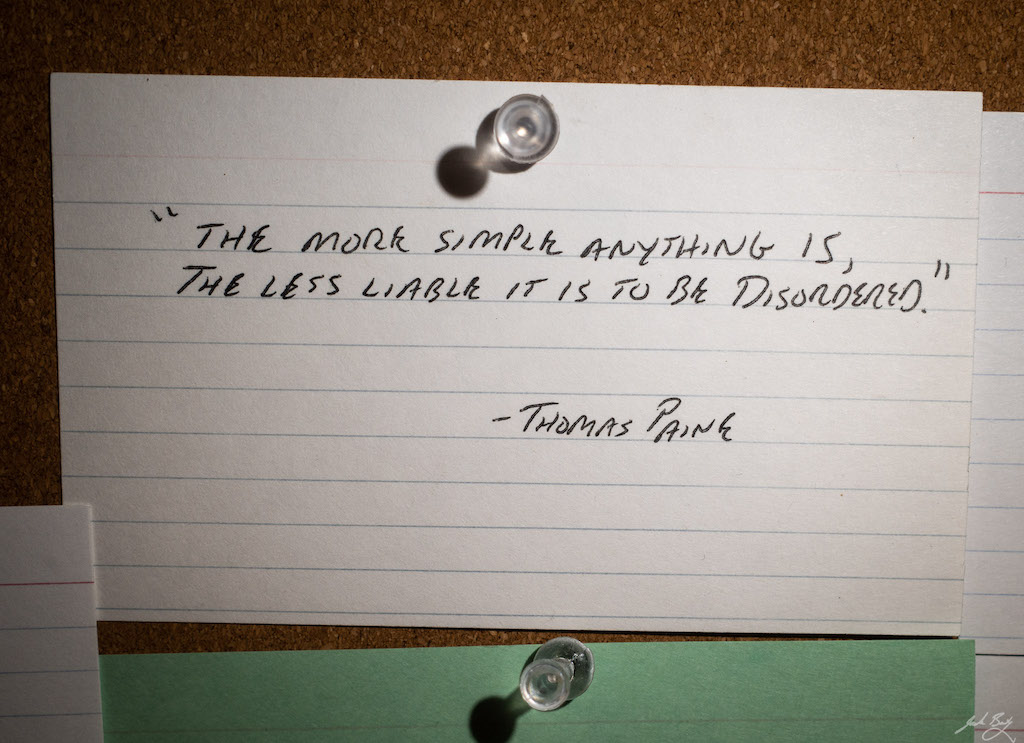 "THE MORE SIMPLE ANYTHING IS,
THE LESS LIABLE IT IS TO BE DISORDERED."
-THOMAS PAINE